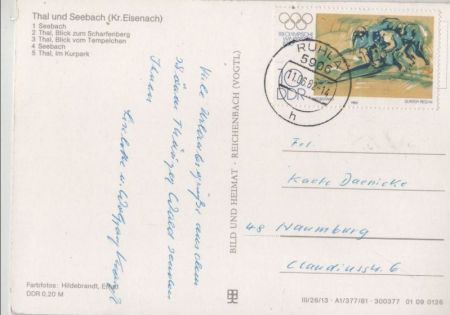 Thal und Seebach (Kr. Eisenach)
1 Seebach
2 Thal, Blick zum Scharfenberg
3 Thal, Blick vom Tempelchen
4 Seebach
5 Thal, im Kurpark
Viele Urlaubsgrüße aus dem
schönen Thüringer Wald senden
Ihnen
Wolfgang
Farbfotos: Hildebrandt, Erfurt
DDR 0,20 M
BILD UND HEIMAT · REICHENBACH (VOGTL)
10
DDR
1980
RUHLA
5906
11.06.82-14
h
Käthe Daenicke
48 Naumburg
Claudiusstr. 6
III/26/13 · A1/377/81 · 300377 01 09 0126